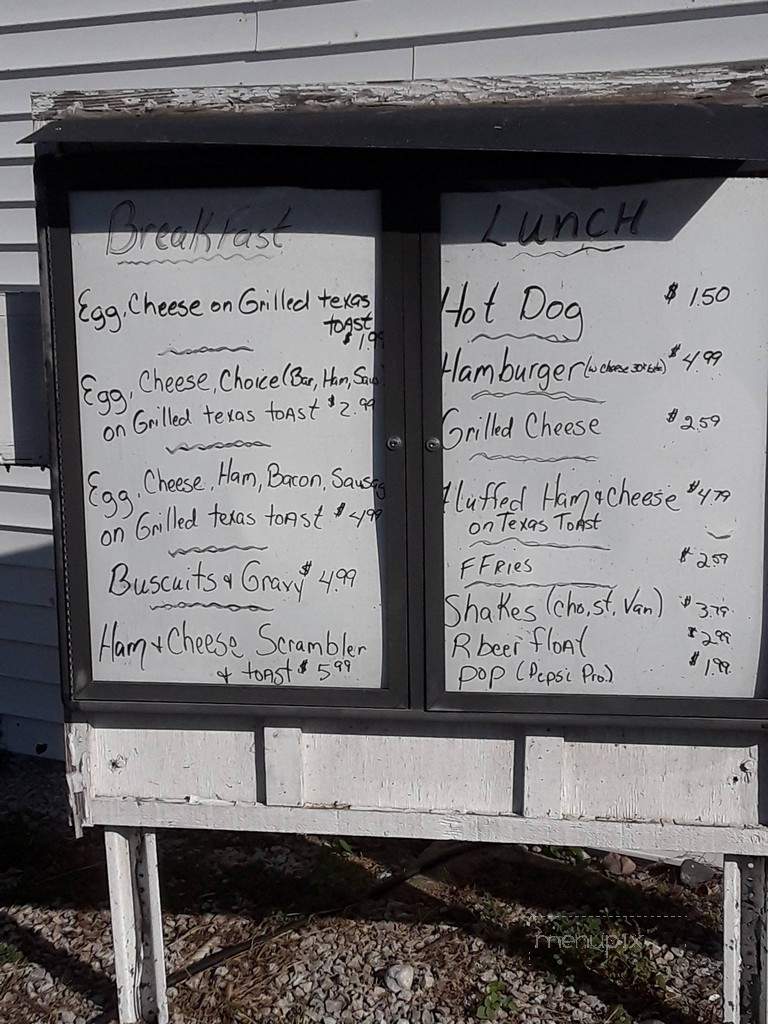 Breakfast
Egg, Cheese on Grilled texas
toAst
$ 1.99
Egg, Cheese, Choice (Bac, Ham, Saus
on Grilled texas toAst $2.99
Egg, Cheese, Ham, Bacon, Sausag
on Grilled texas toAst $4.99
Buscuits & Gravy $4.99
Ham & Cheese Scrambler
& toAst $5.99
LUNCH
Hot Dog $1.50
Hamburger (w cheese 30¢ extra) $4.99
Grilled Cheese $2.59
Fluffed Ham & Cheese $4.79
on Texas ToAst
FFRies $2.59
Shakes (Cho, St, Van) $3.79
R beer float $2.99
pop (Pepsi Pro.) $1.99
menupix